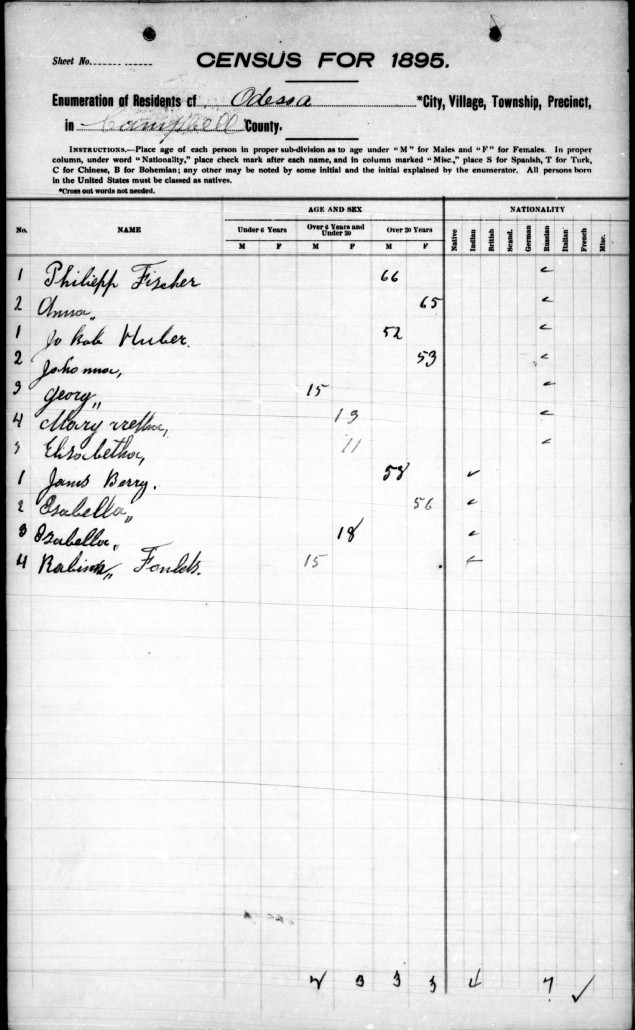 Sheet No.
CENSUS FOR 1895.
Enumeration of Residents of Odessa *City, Village, Township, Precinct,
in Campbell County.
INSTRUCTIONS.—Place age of each person in proper sub-division as to age under "M" for Males and "F" for Females. In proper
column, under word "Nationality," place check mark after each name, and in column marked "Misc.," place S for Spanish, T for Turk,
C for Chinese, B for Bohemian; any other may be noted by some initial and the initial explained by the enumerator. All persons born
in the United States must be classed as natives.
*Cross out words not needed.
AGE AND SEX NATIONALITY
No. NAME Under 6 Years Over 6 Years and Under 20 Over 20 Years Native Indian British Scand. German Russian Italian French Misc.
M F M F M F
1 Philiepp Fischer 66 ✓
2 Anna „ 65 ✓
1 Jokob Huber. 52 ✓
2 Johonna, 53 ✓
3 Georg „ 15 ✓
4 Mary 13 ✓
Elisabetha, 11 ✓
1 Jams Berry. 58 ✓
2 Isabella „ 56 ✓
3 Isabella „ 18 ✓
4 15 ✓
2 3 3 3 4 7 ✓